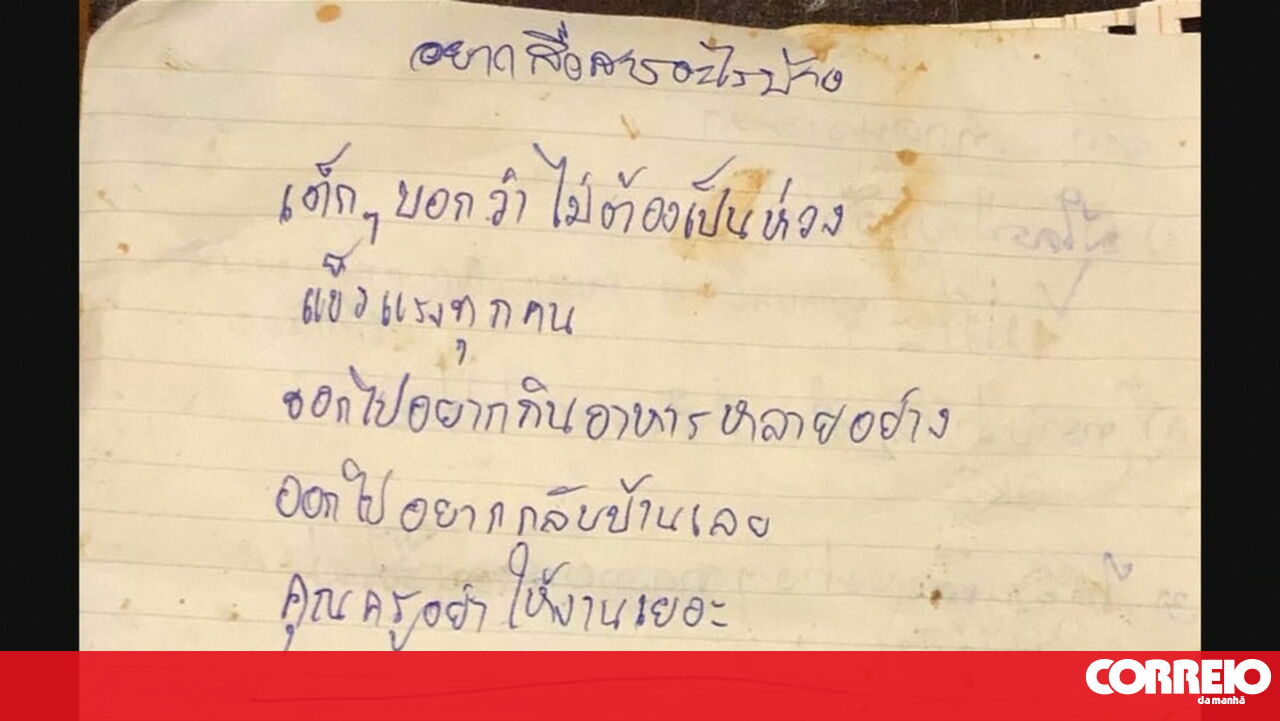 อยากสื่อสารอะไรบ้าง
เด็กๆ บอกว่า ไม่ต้องเป็นห่วง
แข็งแรงทุกคน
ออกไปอยากกินอาหารหลายอย่าง
ออกไปอยากกลับบ้านเลย
คุณครูอย่าให้งานเยอะ
CORREIO
da manhã